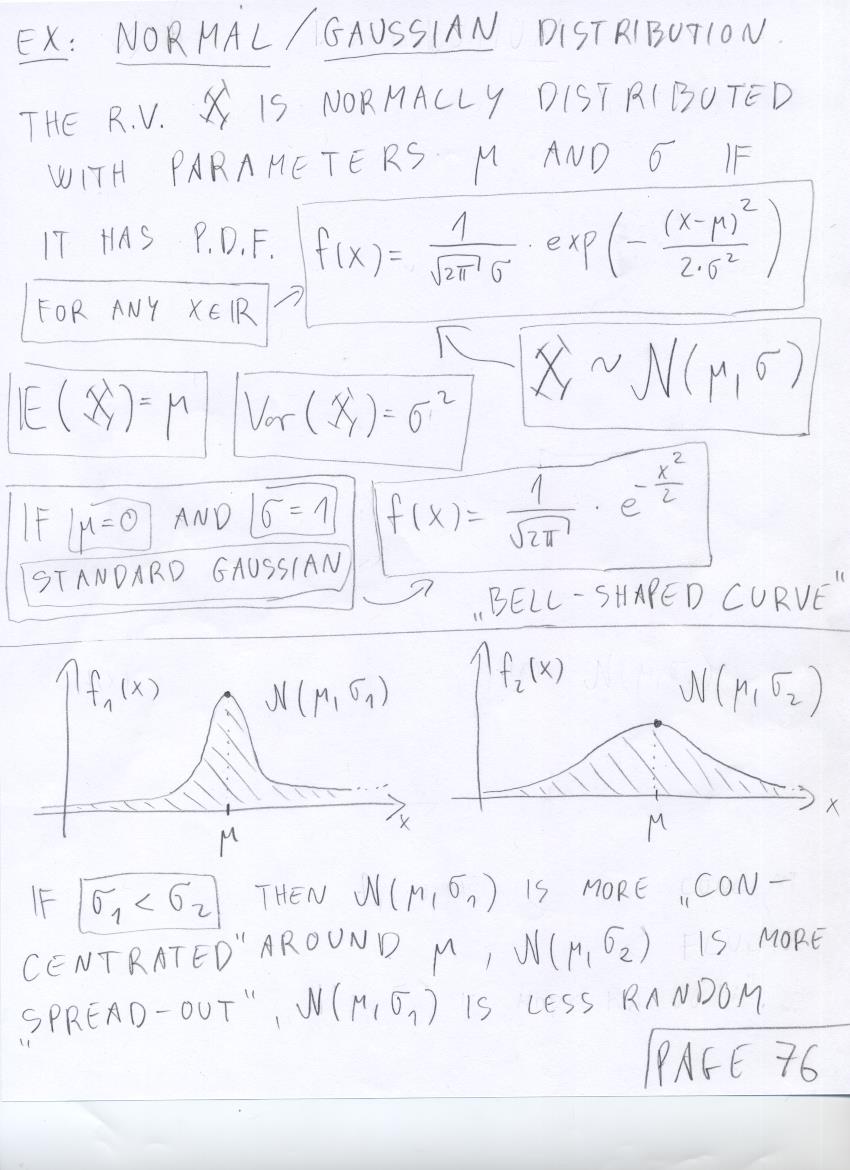 EX: NORMAL / GAUSSIAN DISTRIBUTION.
THE R.V. X IS NORMALLY DISTRIBUTED
WITH PARAMETERS μ AND σ IF
IT HAS P.D.F. f(x) = 1/(√2π σ) · exp(−(x−μ)²/(2·σ²))
FOR ANY x∈ℝ
X ~ N(μ, σ)
E(X) = μ Var(X) = σ²
IF μ=0 AND σ=1 f(x) = 1/√2π · e^(−x²/2)
STANDARD GAUSSIAN
„BELL-SHAPED CURVE"
f₁(x) N(μ, σ₁) f₂(x) N(μ, σ₂)
x x
μ μ
IF σ₁ < σ₂ THEN N(μ, σ₁) IS MORE „CON-
CENTRATED" AROUND μ, N(μ, σ₂) IS MORE
„SPREAD-OUT", N(μ, σ₁) IS LESS RANDOM
PAGE 76